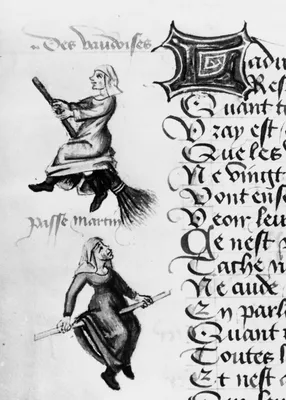 Des vaudoises
passe Martin
Ladu
Res
Quant t
Vray est
Que les v
Ne vingt
Vont ense
Veoir leu
Ce nest
Tache n
Ne cuide
En parl
Quant
Toutes l
Et nest